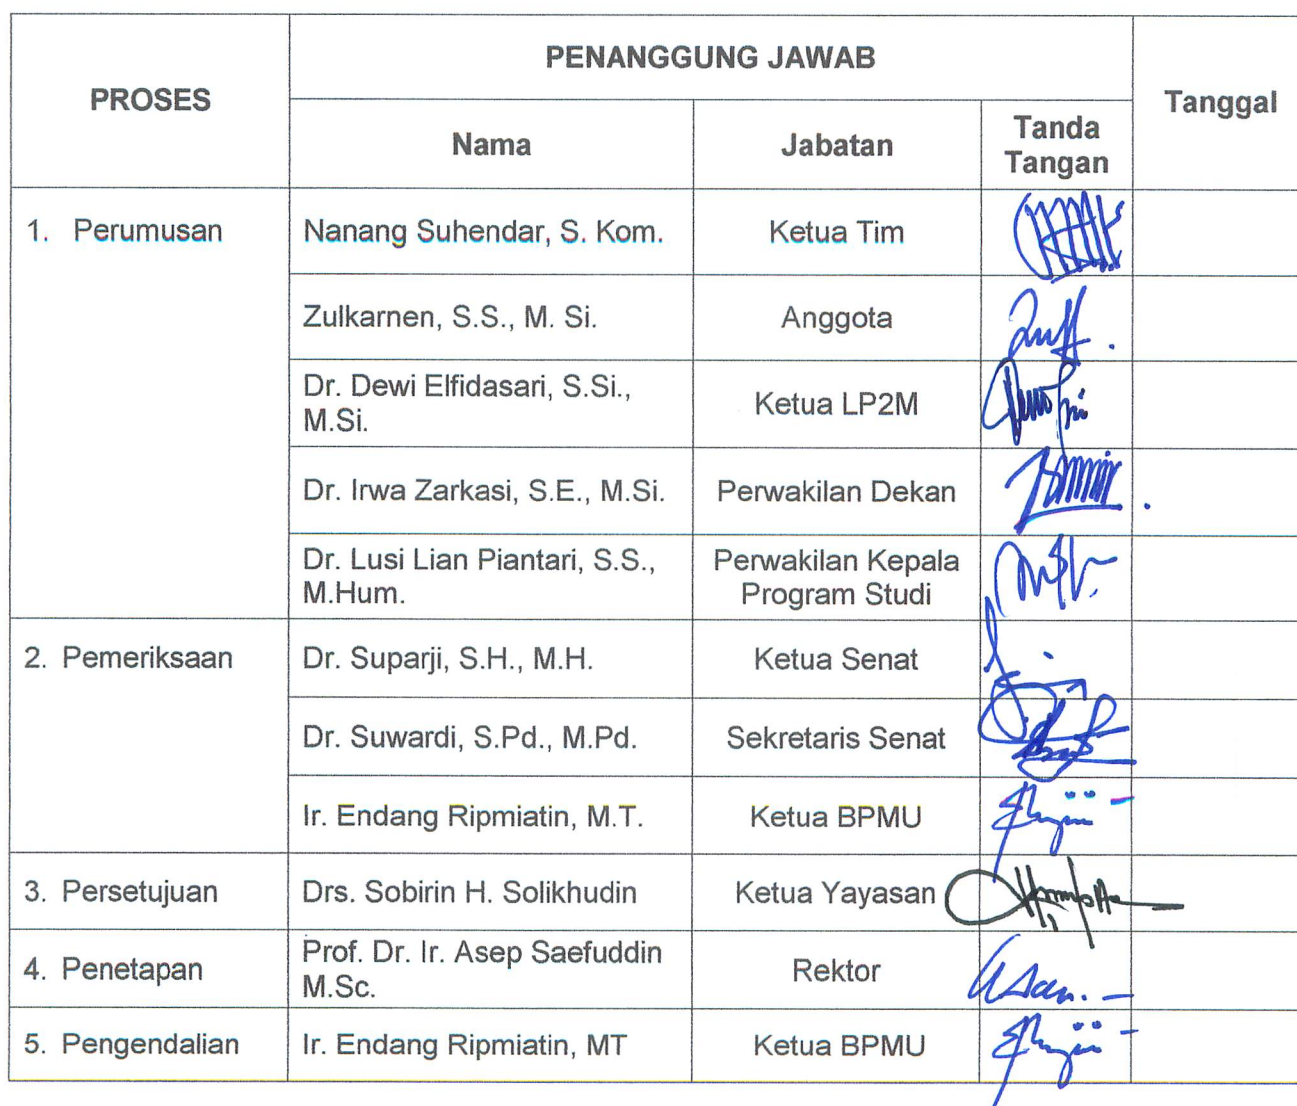 PROSES
PENANGGUNG JAWAB
Tanggal
Nama
Jabatan
Tanda
Tangan
1. Perumusan
Nanang Suhendar, S. Kom.
Ketua Tim
Zulkarnen, S.S., M. Si.
Anggota
Dr. Dewi Elfidasari, S.Si.,
M.Si.
Ketua LP2M
Dr. Irwa Zarkasi, S.E., M.Si.
Perwakilan Dekan
Dr. Lusi Lian Piantari, S.S.,
M.Hum.
Perwakilan Kepala
Program Studi
2. Pemeriksaan
Dr. Suparji, S.H., M.H.
Ketua Senat
Dr. Suwardi, S.Pd., M.Pd.
Sekretaris Senat
Ir. Endang Ripmiatin, M.T.
Ketua BPMU
3. Persetujuan
Drs. Sobirin H. Solikhudin
Ketua Yayasan
4. Penetapan
Prof. Dr. Ir. Asep Saefuddin
M.Sc.
Rektor
5. Pengendalian
Ir. Endang Ripmiatin, MT
Ketua BPMU